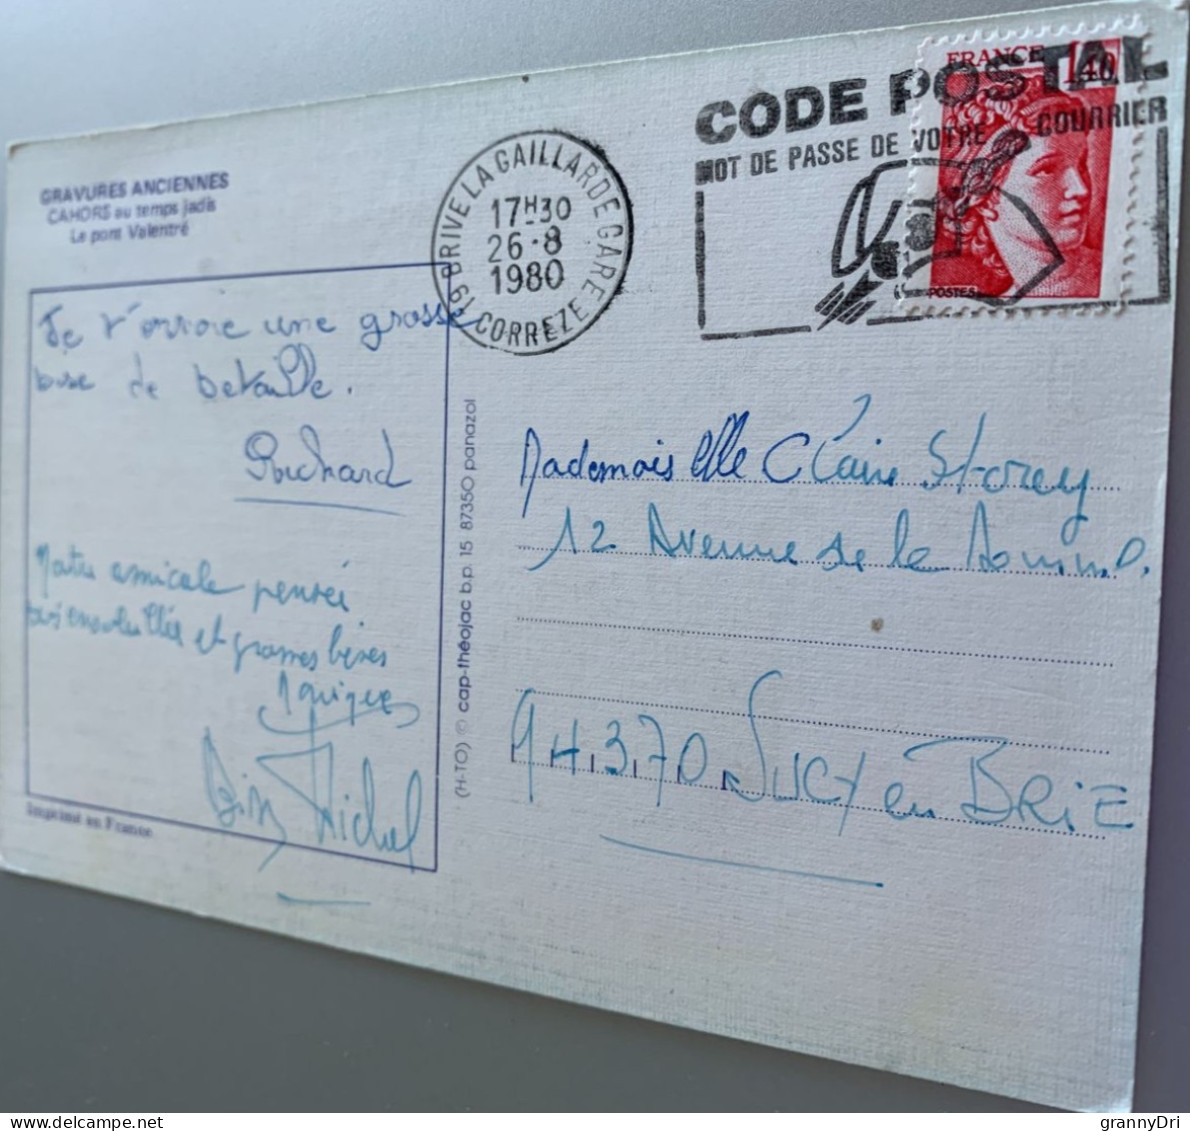 GRAVURES ANCIENNES
CAHORS au temps jadis
Le pont Valentré
Je t'envoie une grosse
bise de Betaille.
Richard
Notre amicale pensée
très ensoleillée et grosses bises
Michel
Imprimé en France
(H-TO) © cap-théojac b.p. 15 87350 panazol
19 BRIVE LA GAILLARDE GARE
17H30
26-8
1980
CORREZE
CODE POSTAL
MOT DE PASSE DE VOTRE COURRIER
FRANCE 1,40
POSTES
Mademoiselle Claire Storey
12 Avenue de la Somme.
94370 SUCY en BRIE
grannyDri
www.delcampe.net